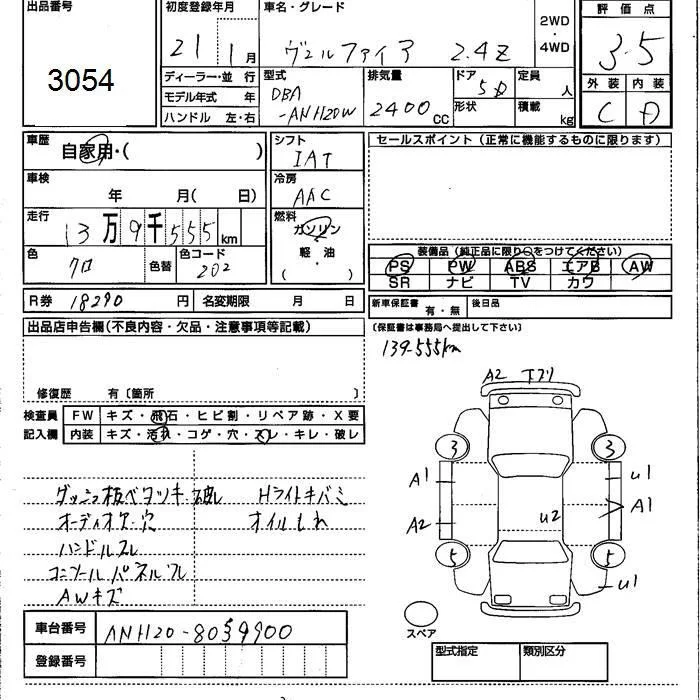 出品番号
3054
初度登録年月
21 1月
車名・グレード
ヴェルファイア 2.4Z
2WD
・
4WD
評価点
3.5
外装 内装
C A
ディーラー・並行
モデル年式 年
ハンドル 左・右
型式
DBA
-ANH20W
排気量
2400 CC
ドア
5D
形状
定員
人
積載
kg
車歴
自家用・( )
車検
年 月( 日)
走行
13万9千555km
色
クロ
色替
色コード
202
シフト
IAT
冷房
AAC
燃料
ガソリン
軽・油
( ・ )
セールスポイント(正常に機能するものに限ります)
装備品(純正品に限り○をつけてください)
PS PW ABS エアB AW
SR ナビ TV カワ
R券 18290 円 名変期限 月 日
新車保証書 有・無 後日品
(保証書は事務局へ提出して下さい)
出品店申告欄(不良内容・欠品・注意事項等記載)
修復歴 有〔箇所 〕
139.555km
検査員
記入欄
FW キズ・飛石・ヒビ割・リペア跡・X要
内装 キズ・汚れ・コゲ・穴・スレ・キレ・破レ
ダッシュ板ベタツキ Hライトキバミ
オーディオケ・穴 オイルもれ
ハンドルスレ
コンソールパネルスレ
AWキズ
A2
3 3
A1 U1
A1
A2 U2
5 5
U1
スペア
車台番号 ANH20-8059900
登録番号
型式指定 類別区分